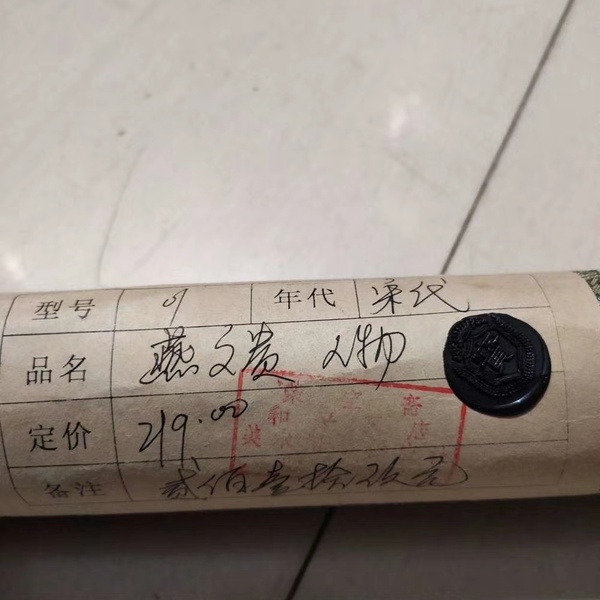 型号 01 年代 宋代
品名 燕文贵 人物
定价 219.00
备注 贰佰壹拾玖元